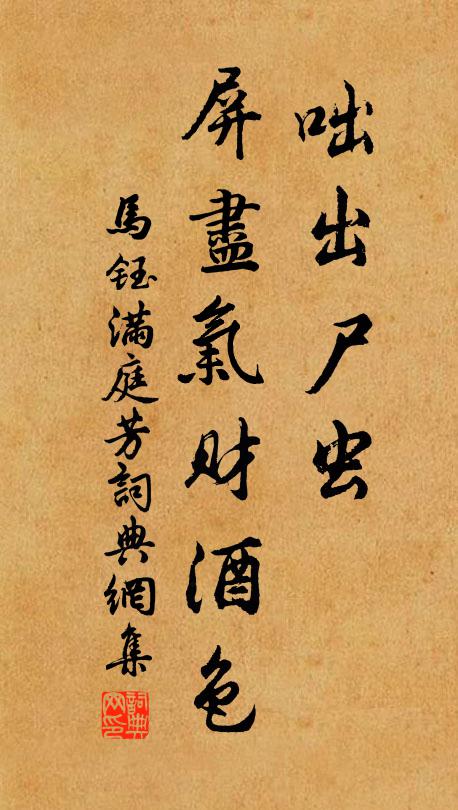 咄出尸虫
屏盡氣财酒色
馬鈺滿庭芳詞典網集
詞典网印